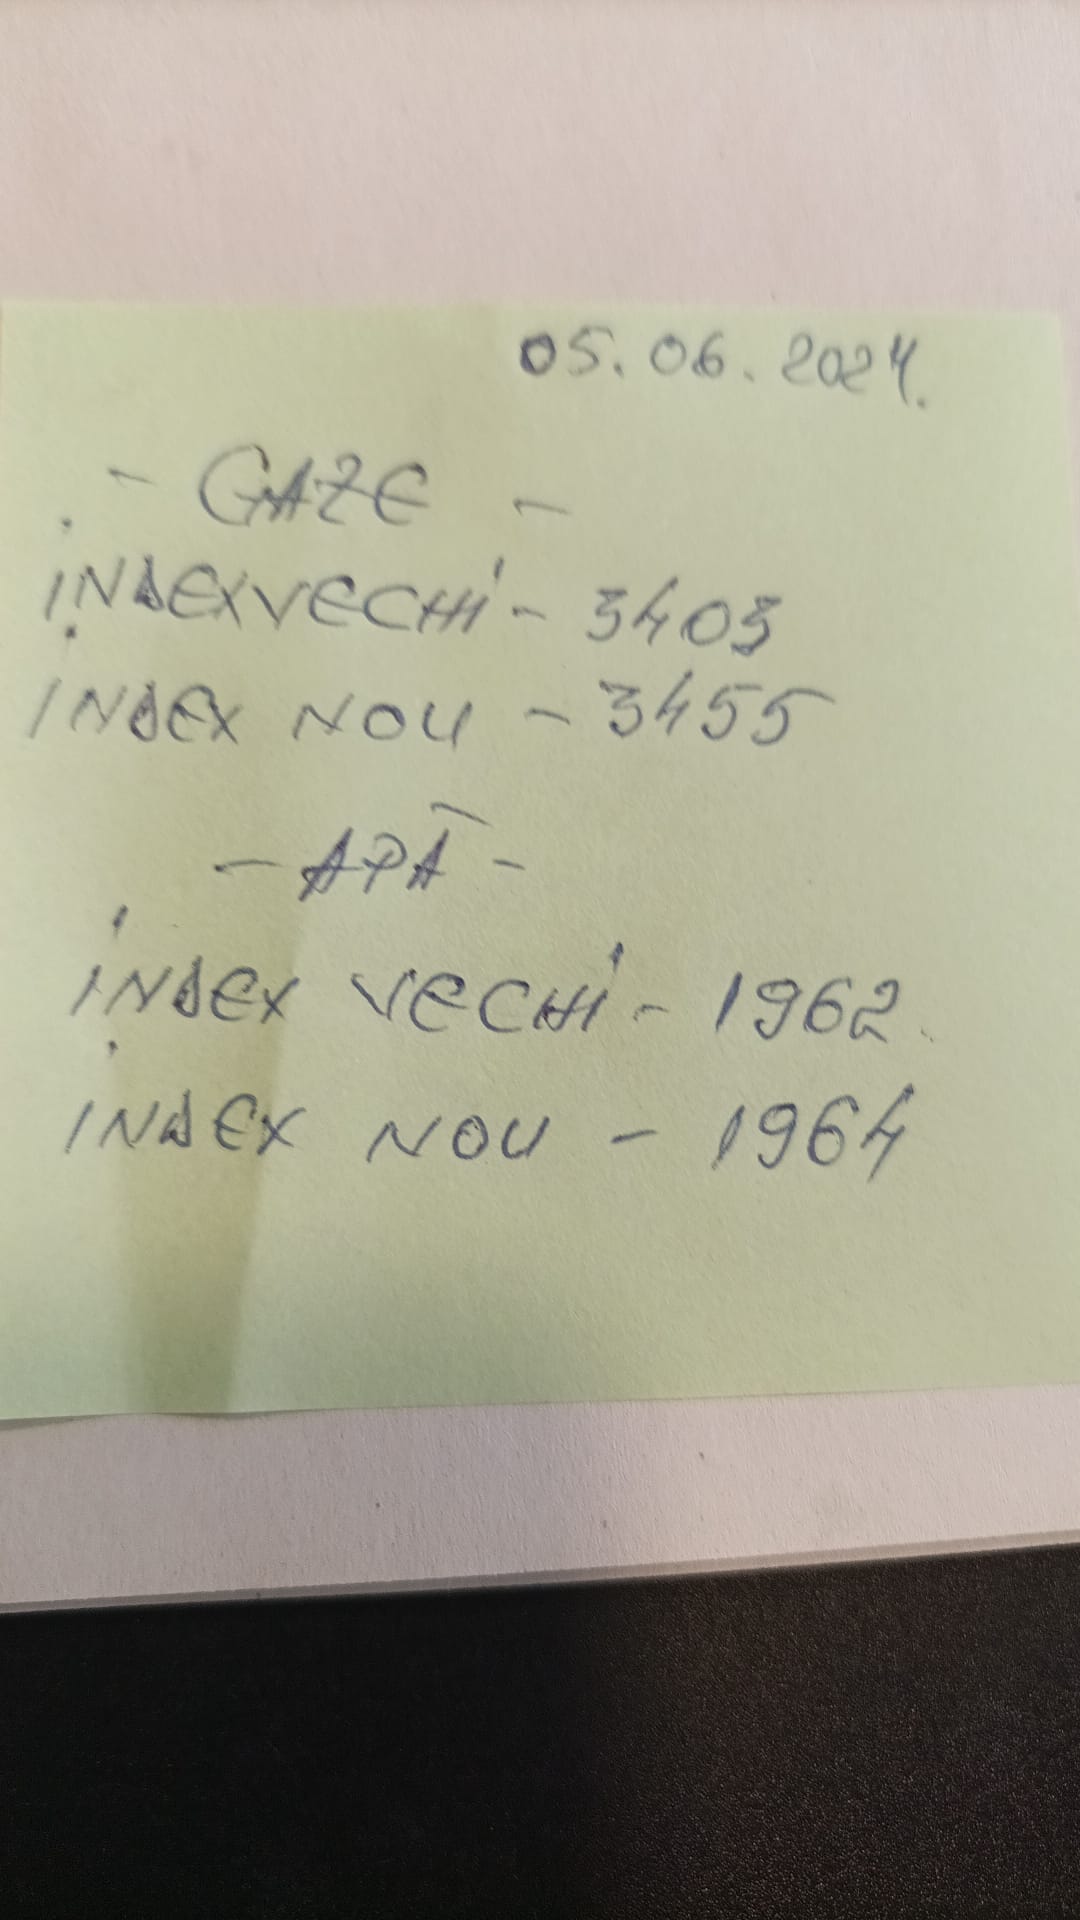 05.06.2024.
- GAZE -
INDEX VECHI - 3403
INDEX NOU - 3455
- APĂ -
INDEX VECHI - 1962
INDEX NOU - 1964